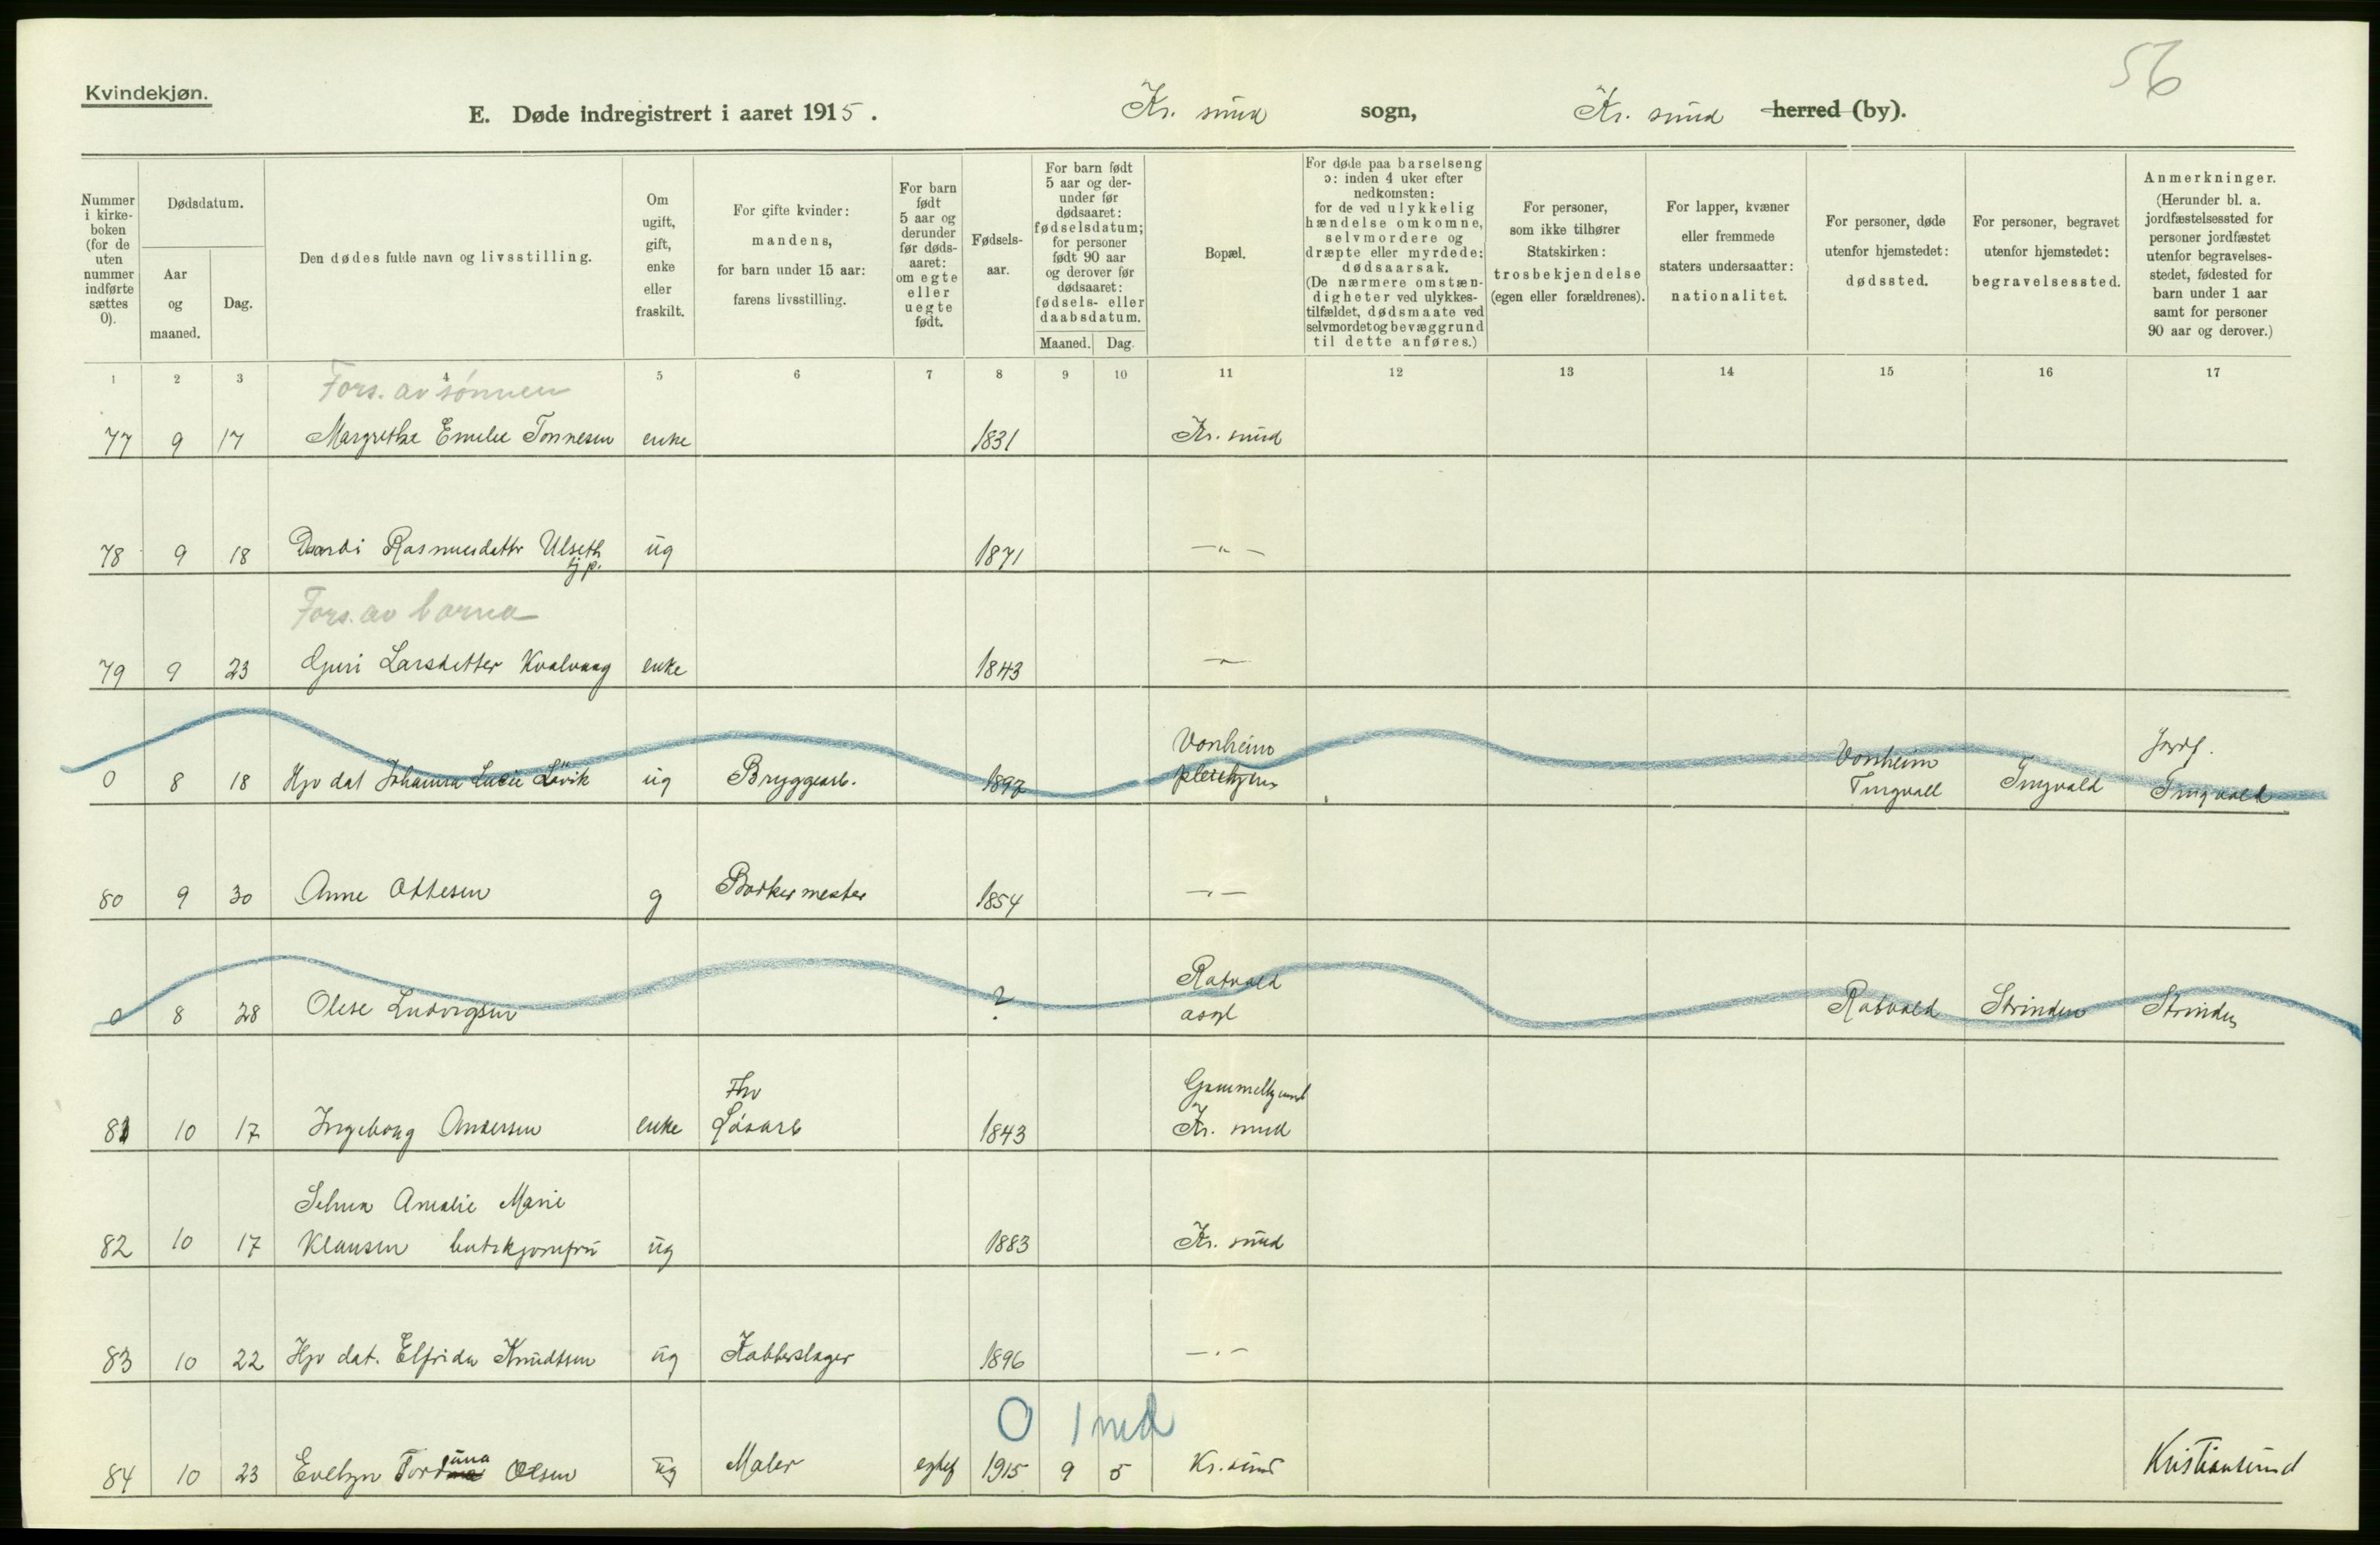 56
Kvindekjøn.
E. Døde indregistrert i aaret 1915.
Kr. sund sogn, Kr. sund herred (by).
Nummer i kirkeboken (for de uten nummer indførte sættes 0).
Dødsdatum.
Aar og maaned.
Dag.
Den dødes fulde navn og livsstilling.
Om ugift, gift, enke eller fraskilt.
For gifte kvinder: mandens, for barn under 15 aar: farens livsstilling.
For barn født 5 aar og derunder før dødsaaret: om egte eller uegte født.
Fødselsaar.
For barn født 5 aar og derunder før dødsaaret: fødselsdatum; for personer født 90 aar og derover før dødsaaret: fødsels- eller daabsdatum.
Maaned. Dag.
Bopæl.
For døde paa barselseng ɔ: inden 4 uker efter nedkomsten: for de ved ulykkelig hændelse omkomne, selvmordere og dræpte eller myrdede: dødsaarsak. (De nærmere omstændigheter ved ulykkestilfældet, dødsmaate ved selvmordet og bevæggrund til dette anføres.)
For personer, som ikke tilhører Statskirken: trosbekjendelse (egen eller forældrenes).
For lapper, kvæner eller fremmede staters undersaatter: nationalitet.
For personer, døde utenfor hjemstedet: dødssted.
For personer, begravet utenfor hjemstedet: begravelsessted.
Anmerkninger. (Herunder bl. a. jordfæstelsessted for personer jordfæstet utenfor begravelsesstedet, fødested for barn under 1 aar samt for personer 90 aar og derover.)
1 2 3 4 5 6 7 8 9 10 11 12 13 14 15 16 17
Fors. av sønnen
77 9 17 Margrethe Emelie Tønnesen enke 1831 Kr. sund
78 9 18 Rasmusdatter Ulseth ug 1871 — „ —
tjp.
Fors. av barna
79 9 23 Guri Larsdatter Kvalvaag enke 1843 — „ —
Vonheim Jordf.
0 8 18 Hjv dat Johanna Lucie Løvik ug Bryggearb. 1897 pleiehjem Vonheim Tingvall Tingvald Tingvald
80 9 30 Anne Ottesen g Bødkermester 1854 — „ —
Ratvold
0 8 28 Olese Ludvigsen ? asyl Ratvold Strinden Strinden
Fhv Gammelhjemmet
81 10 17 Ingeborg Andersen enke Løsarb 1843 Kr. sund
Selma Amalie Marie
82 10 17 Klausen butikjomfru ug 1883 Kr. sund
83 10 22 Hjv dat. Elfrida Knudtsen ug Kobberslager 1896 — „ —
0 1 md
84 10 23 Evelyn Olsen ug Maler egtef 1915 9 5 Kr. sund Kristiansund